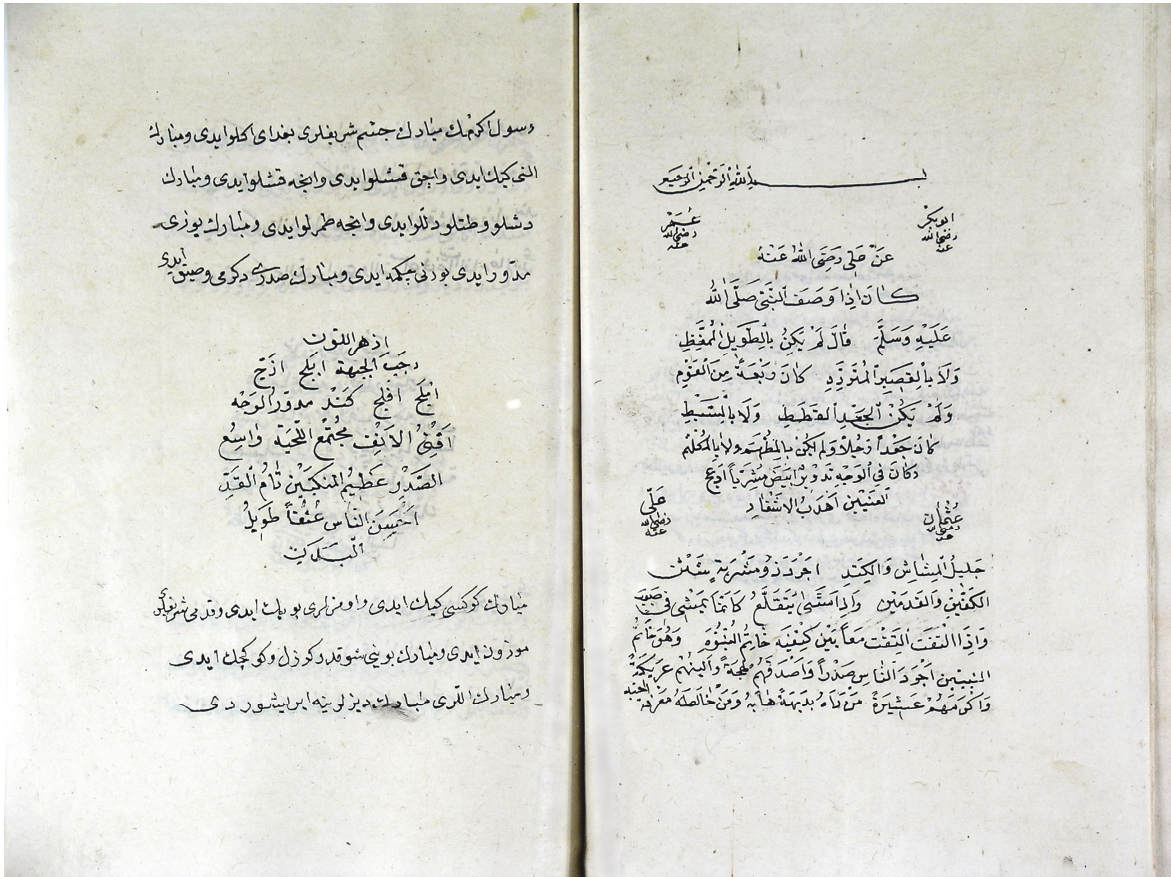 بسم الله الرحمن الرحيم
ابوبكر رضي الله عنه
عمر رضي الله عنه
عَنْ عَلى رَضِىَ اللهُ عَنهُ
كَانَ اِذَا وَصَفَ النَّبِىَّ صَلَّى اللهُ
عَلَيْهِ وَسَلَّمَ قَالَ لَمْ يَكُنْ بِالطَّوِيلِ الْمُمَّغِطِ
وَلَا بِالْقَصِيرِ الْمُتَرَدِّدِ كَانَ رَبْعَةً مِنَ الْقَوْمِ
وَلَمْ يَكُنْ الْجَعْدِ الْقَطَطِ وَلَا بِالسَّبِطِ
كانَ جَعْداً رَجِلاً وَلم يكُنْ بِالمُطَهَّمِ وَلا بِالمُكَلْثَمْ
وَكانَ فِى الْوَجْهِ تَدْوِيرٌ اَبْيَض مُشْرَباً اَدْعَج
العَيْنَيْنِ اَهْدَبُ الاَشْفَارِ
عثمان رضي الله عنه
علي رضي الله عنه
جَليلُ الْمُشَاشِ وَالكَتَدِ اَجْرَدُ ذُو مَسْرُبَةٍ شَثْنُ
الكَفَّيْنِ وَالقَدَمَيْنِ وَاِذا مَشَى يَتَقَلَّعُ كَاَنَّمَا يَمْشِى فِى صَبَبٍ
وَاِذَا الْتَفَتَ الْتَفَتَ مَعاً بَيْنَ كَتِفَيْهِ خَاتِمُ النُّبُوَّةِ وَهُوَ خَاتَمُ
النَّبِيِّينَ اَجْوَدُ النَّاسِ صَدْراً وَاَصْدَقُهُمْ لَهْجَةً وَاَلْيَنُهُمْ عَرِيكَةً
وَاَكْرَمُهُمْ عَشِيرَةً مَنْ رَاٰهُ بَدِيهَةً هَابَهُ وَمَنْ خَالَطَهُ مَعْرِفَةً اَحَبَّهُ
رسول اكرمك مبارك جسم شريفلرى بغداى اكلو ايدى ومبارك
النى كيك ايدى واچق قشلو ايدى وانجه قشلو ايدى ومبارك
دشلو وطتلو دللو ايدى وانجه طمرلو ايدى ومبارك يوزى
مدور ايدى بورنى چكمه ايدى ومبارك صدرى دكرمى وصيق ايدى
ازهر اللون
رحب الجبهة ابلج ازج
ابلج افلج مدور الوجه
اقنى الانف مجتمع اللحية واسع
الصدر عظيم المنكبين تام القد
احسن الناس عنقاً طويل
اليدين
مبارك كوكسى كيك ايدى واومزلرى بويك ايدى وقدمى شريفلرى
موزون ايدى ومبارك بوينى شو قدر كوزل وكوكچك ايدى
ومبارك اللرى مبارك ديزلرينه ايريشوردى